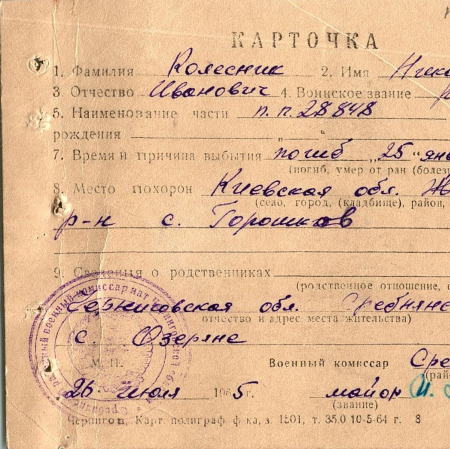 КАРТОЧКА
1. Фамилия Колесник 2. Имя
3 Отчество Иванович 4. Воинское звание
5. Наименование части п.п. 28848
рождения
7. Время и причина выбытия погиб „25" янв
(погиб, умер от ран (болез
8. Место похорон Киевская обл.
(село, город, (кладбище), район,
р-н с. Горошков
9. Сведения о родственниках
(родственное отношение,
Черниговская обл. Сребнянс
отчество и адрес места жительства)
с. Озеряне
М. П. Военный комиссар Сре
(рай
26 июля 1965г. майор
(звание)
Чернигов, Карт. полиграф. ф-ка, з. 1501, т. 35.0 10-5-64 г. 8